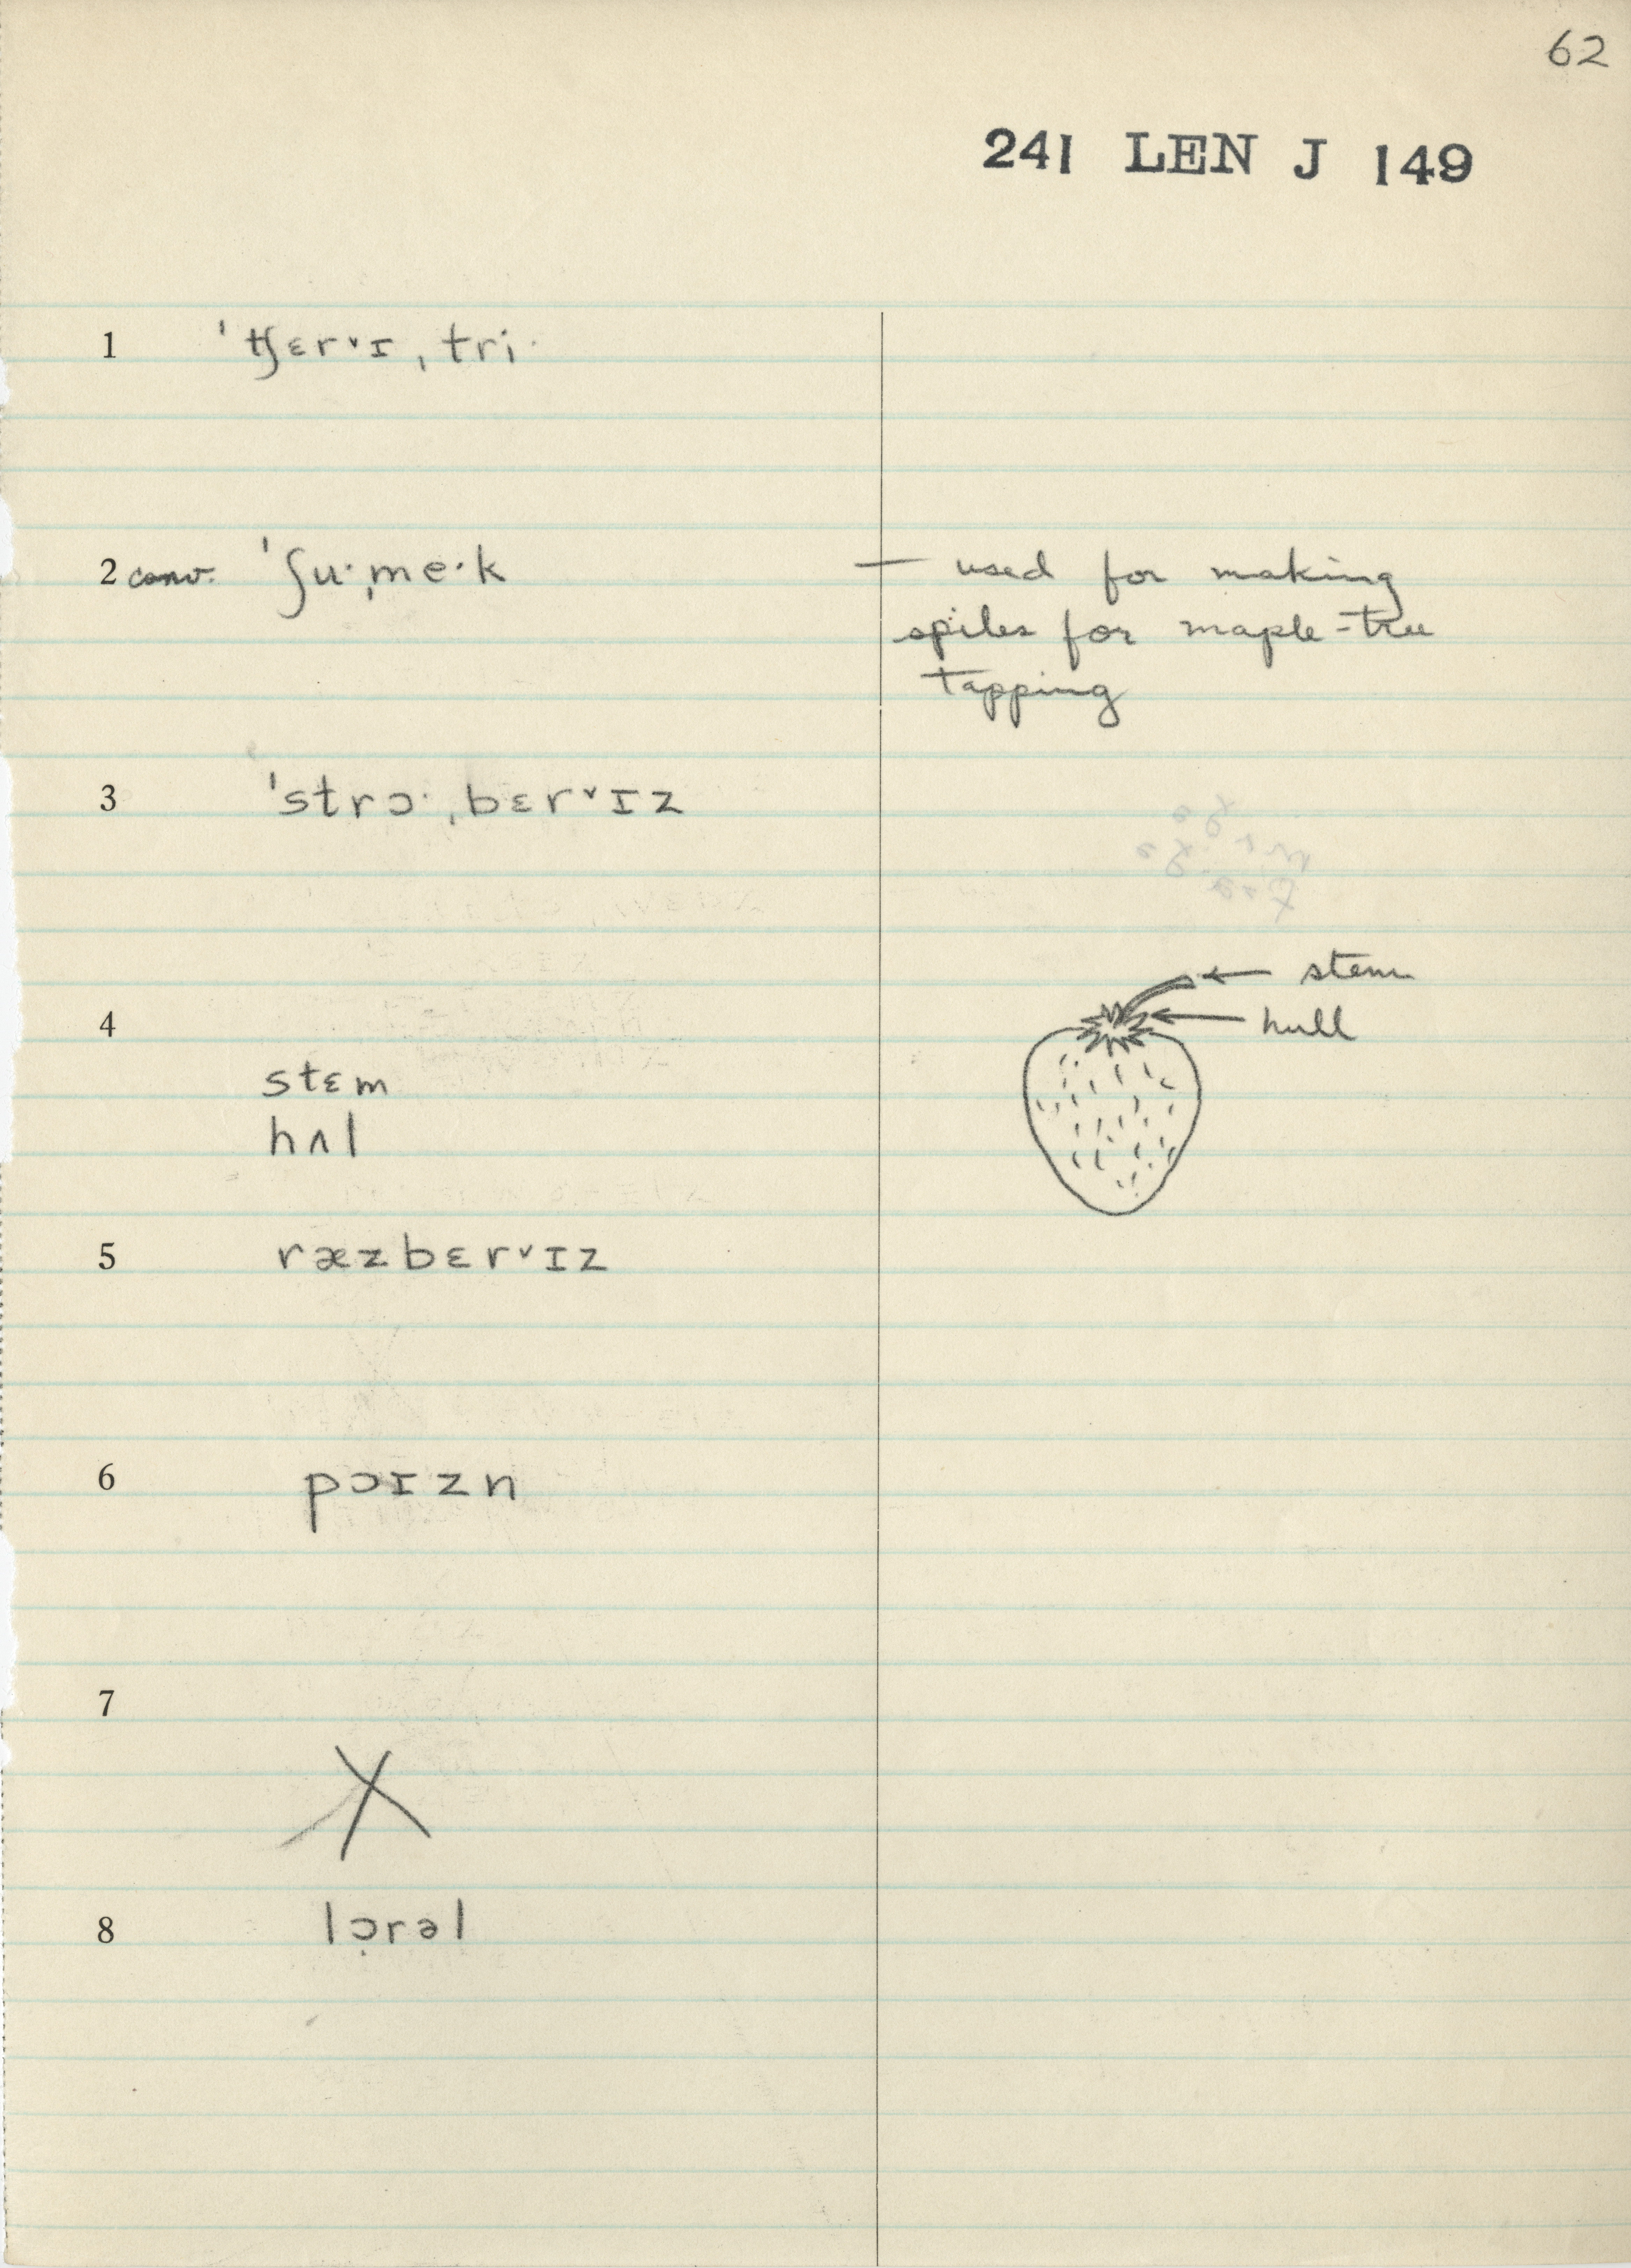 62
241 LEN J 149
1 ˈʧɛr˅ɪˌtri·
2 conv. ˈʃu·ˌme·k — used for making
spiles for maple-tree
tapping
3 ˈstrɔ·ˌbɛr˅ɪz
stem
4 hull
stɛm
hʌl
5 ræzbɛr˅ɪz
6 pɔɪzn
7
X
8 lɔ̣rəl